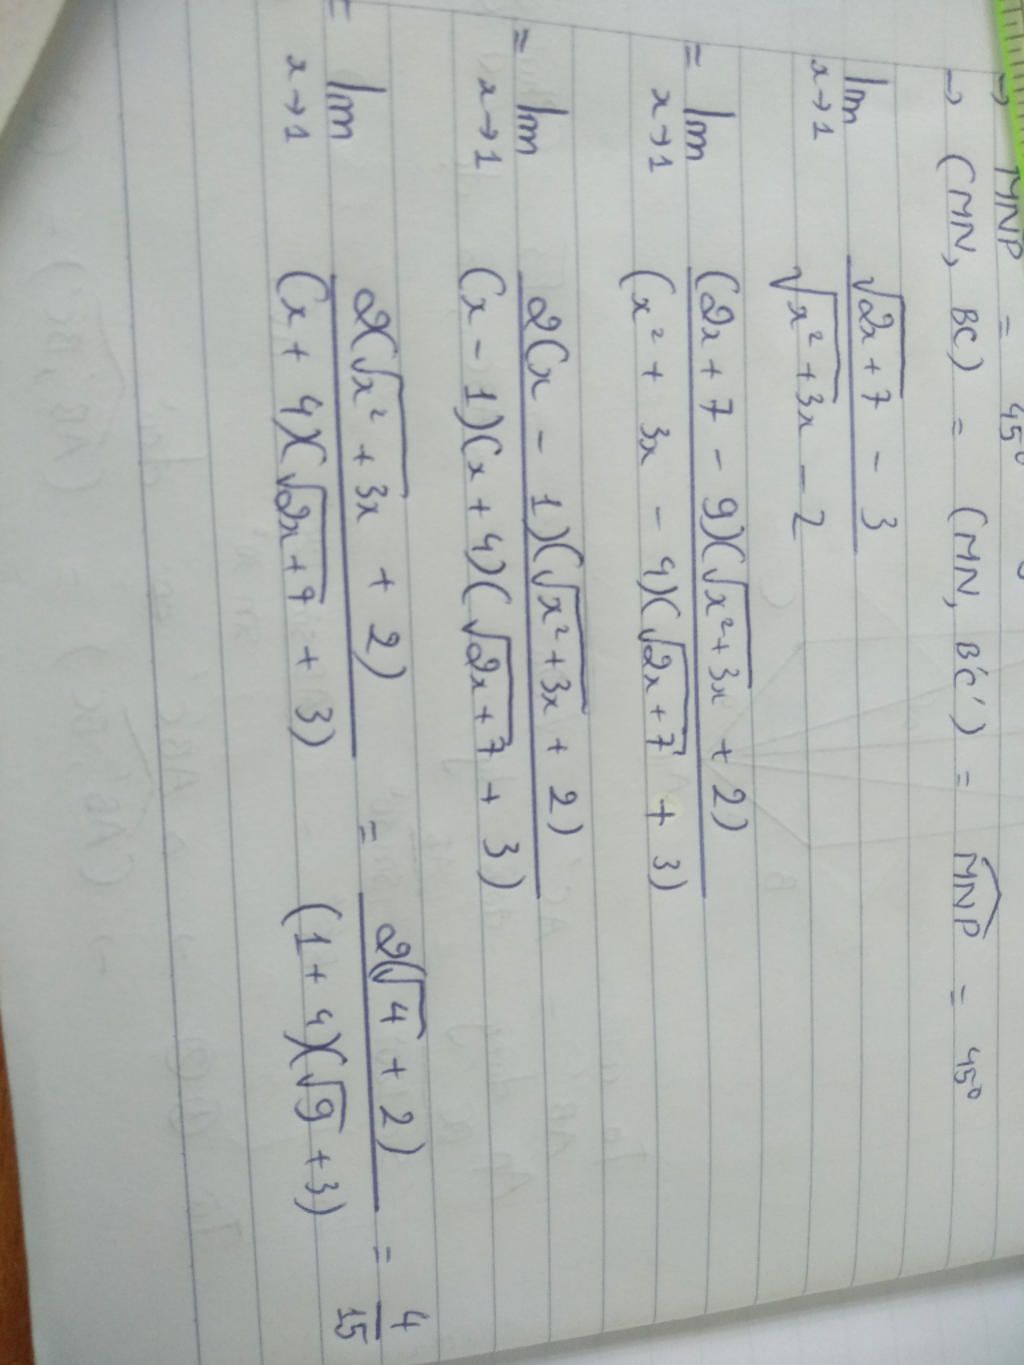 → MNP = 45°
→ (MN, BC) = (MN, B'C') = MNP = 45°
lim x→1 (√(2x+7) - 3)/(√(x²+3x) - 2)
= lim x→1 ((2x+7-9)(√(x²+3x) + 2))/((x² + 3x - 4)(√(2x+7) + 3))
= lim x→1 (2(x - 1)(√(x²+3x) + 2))/((x - 1)(x+4)(√(2x+7) + 3))
= lim x→1 (2(√(x²+3x) + 2))/((x + 4)(√(2x+7) + 3)) = (2(√4 + 2))/((1+4)(√9 + 3)) = 4/15